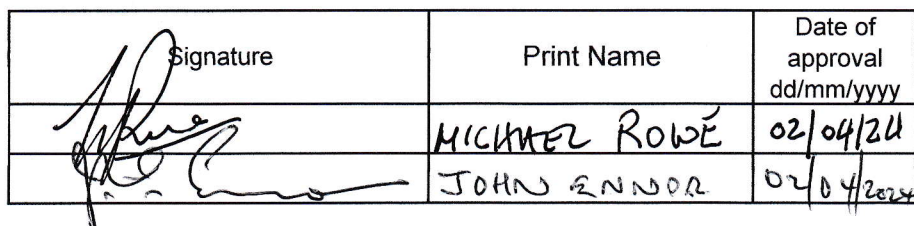 Signature Print Name Date of
approval
dd/mm/yyyy
MICHAEL ROWE 02/04/24
JOHN ENNOR 02/04/2024